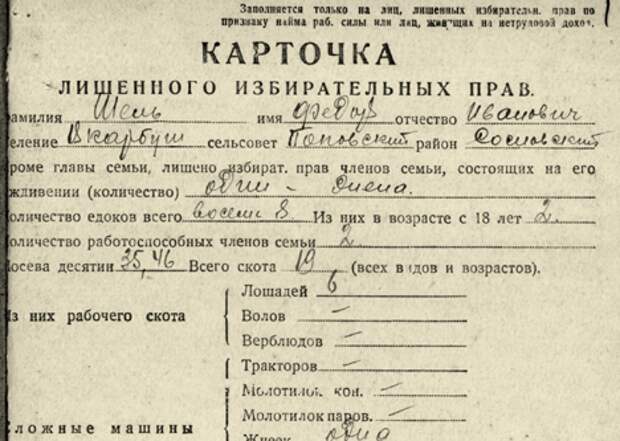 Заполняется только на лиц, лишенных избирательн. прав по
признаку найма раб. силы или лиц, живущих на нетрудовой доход.
КАРТОЧКА
ЛИШЕННОГО ИЗБИРАТЕЛЬНЫХ ПРАВ.
амилия Шель имя Федор отчество Иванович
еление сельсовет Поповский район Сосновский
роме главы семьи, лишено избират. прав членов семьи, состоящих на его
ждивении (количество) один – жена.
оличество едоков всего восемь 8. Из них в возрасте с 18 лет 2.
оличество работоспособных членов семьи 2
осева десятин 35,46 Всего скота 19 (всех видов и возрастов).
Лошадей 6
Из них рабочего скота Волов —
Верблюдов —
Тракторов —
Молотилок кон. —
Молотилок паров. —
ложные машины
Жнеек одна